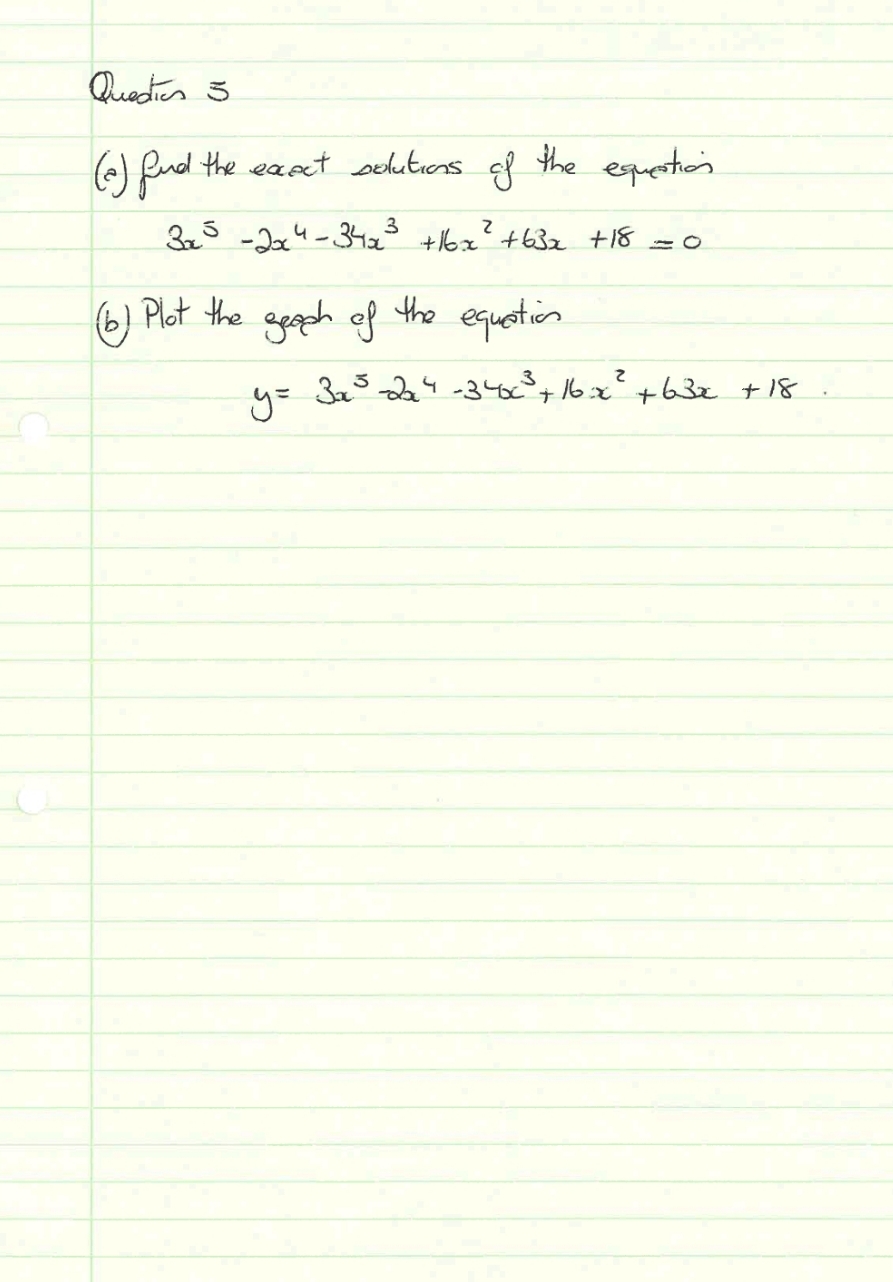 Question 3
(a) find the exact solutions of the equation
3x⁵ -2x⁴ -34x³ +16x² +63x +18 = 0
(b) Plot the graph of the equation
y = 3x⁵ -2x⁴ -34x³ + 16x² + 63x + 18 .